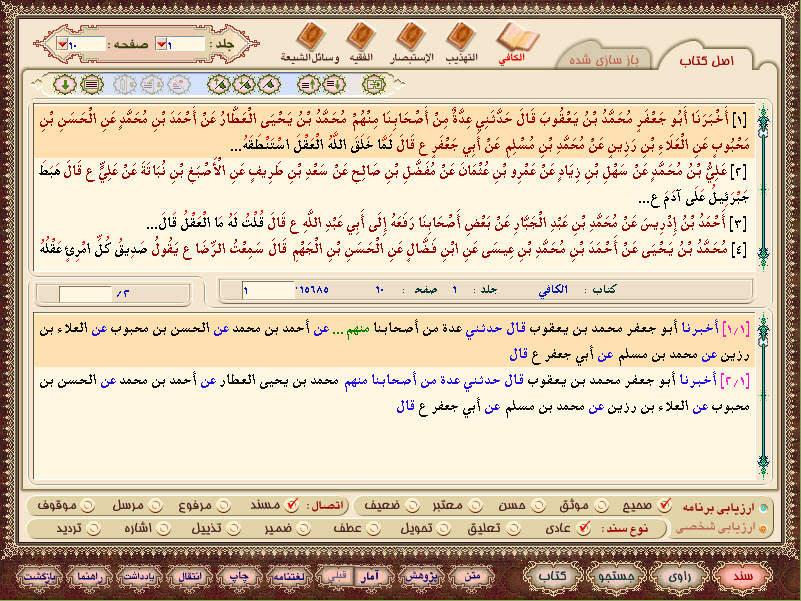 اصل کتاب
باز سازی شده
الکافي
التهذیب
الإستبصار
الفقیه
وسائل الشیعة
جلد : ۱ صفحه : ۱۰
[۱] أَخْبَرَنَا أَبُو جَعْفَرٍ مُحَمَّدُ بْنُ يَعْقُوبَ قَالَ حَدَّثَنِي عِدَّةٌ مِنْ أَصْحَابِنَا مِنْهُمْ مُحَمَّدُ بْنُ يَحْيَى الْعَطَّارُ عَنْ أَحْمَدَ بْنِ مُحَمَّدٍ عَنِ الْحَسَنِ بْنِ
مَحْبُوبٍ عَنِ الْعَلَاءِ بْنِ رَزِينٍ عَنْ مُحَمَّدِ بْنِ مُسْلِمٍ عَنْ أَبِي جَعْفَرٍ ع قَالَ لَمَّا خَلَقَ اللَّهُ الْعَقْلَ اسْتَنْطَقَهُ...
[۲] عَلِيُّ بْنُ مُحَمَّدٍ عَنْ سَهْلِ بْنِ زِيَادٍ عَنْ عَمْرِو بْنِ عُثْمَانَ عَنْ مُفَضَّلِ بْنِ صَالِحٍ عَنْ سَعْدِ بْنِ طَرِيفٍ عَنِ الْأَصْبَغِ بْنِ نُبَاتَةَ عَنْ عَلِيٍّ ع قَالَ هَبَطَ
جَبْرَئِيلُ عَلَى آدَمَ ع...
[۳] أَحْمَدُ بْنُ إِدْرِيسَ عَنْ مُحَمَّدِ بْنِ عَبْدِ الْجَبَّارِ عَنْ بَعْضِ أَصْحَابِنَا رَفَعَهُ إِلَى أَبِي عَبْدِ اللَّهِ ع قَالَ قُلْتُ لَهُ مَا الْعَقْلُ قَالَ...
[۴] مُحَمَّدُ بْنُ يَحْيَى عَنْ أَحْمَدَ بْنِ مُحَمَّدِ بْنِ عِيسَى عَنِ ابْنِ فَضَّالٍ عَنِ الْحَسَنِ بْنِ الْجَهْمِ قَالَ سَمِعْتُ الرِّضَا ع يَقُولُ صَدِيقُ كُلِّ امْرِئٍ عَقْلُهُ
کتاب : الکافي جلد : ۱ صفحه : ۱۰ ۱۵۶۸۵/ ۱
۲/
[۱/۱] أخبرنا أبو جعفر محمد بن يعقوب قال حدثني عدة من أصحابنا منهم ... عن أحمد بن محمد عن الحسن بن محبوب عن العلاء بن
رزين عن محمد بن مسلم عن أبي جعفر ع قال
[۲/۱] أخبرنا أبو جعفر محمد بن يعقوب قال حدثني عدة من أصحابنا منهم محمد بن يحيى العطار عن أحمد بن محمد عن الحسن بن
محبوب عن العلاء بن رزين عن محمد بن مسلم عن أبي جعفر ع قال
ارزیابی برنامه صحیح موثق حسن معتبر ضعیف اتصال : مسند مرفوع مرسل موقوف
ارزیابی شخصی نوع سند : عادی تعلیق تحویل عطف ضمیر تذییل اشاره تردید
سند راوی جستجو کتاب متن پژوهش آمار قبلی لغتنامه چاپ انتقال یادداشت راهنما بازگشت